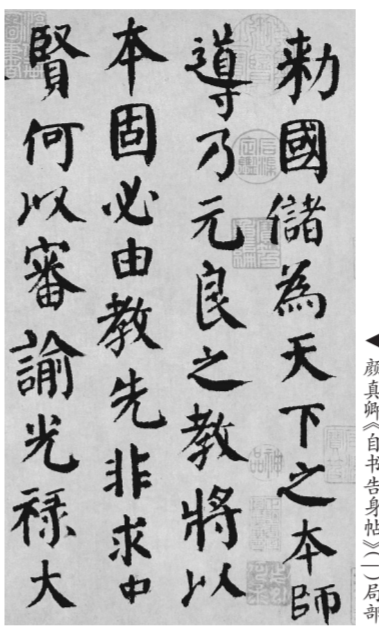 勑國儲為天下之本師
導乃元良之教將以
本固必由教先非求中
賢何以審諭光祿大
◀颜真卿《自书告身帖》(一)局部